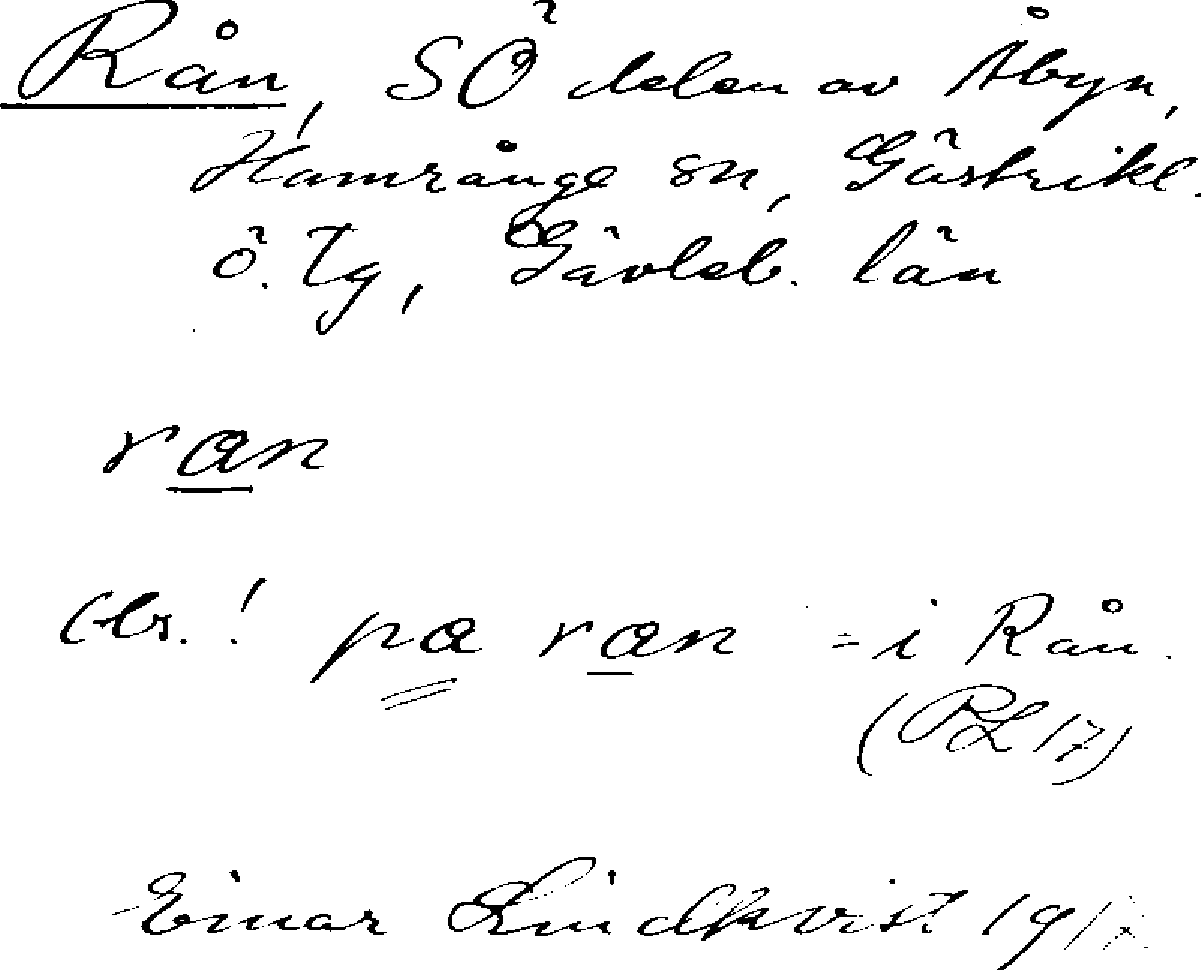 Rån, SÖ delen av Åbyn,
Hamrånge sn, Gästrikl.
ö. Tg, Gävleb. län
ran
Obs.! pa ran = i Rån.
(RL 17)
Einar Lindkvist 1917